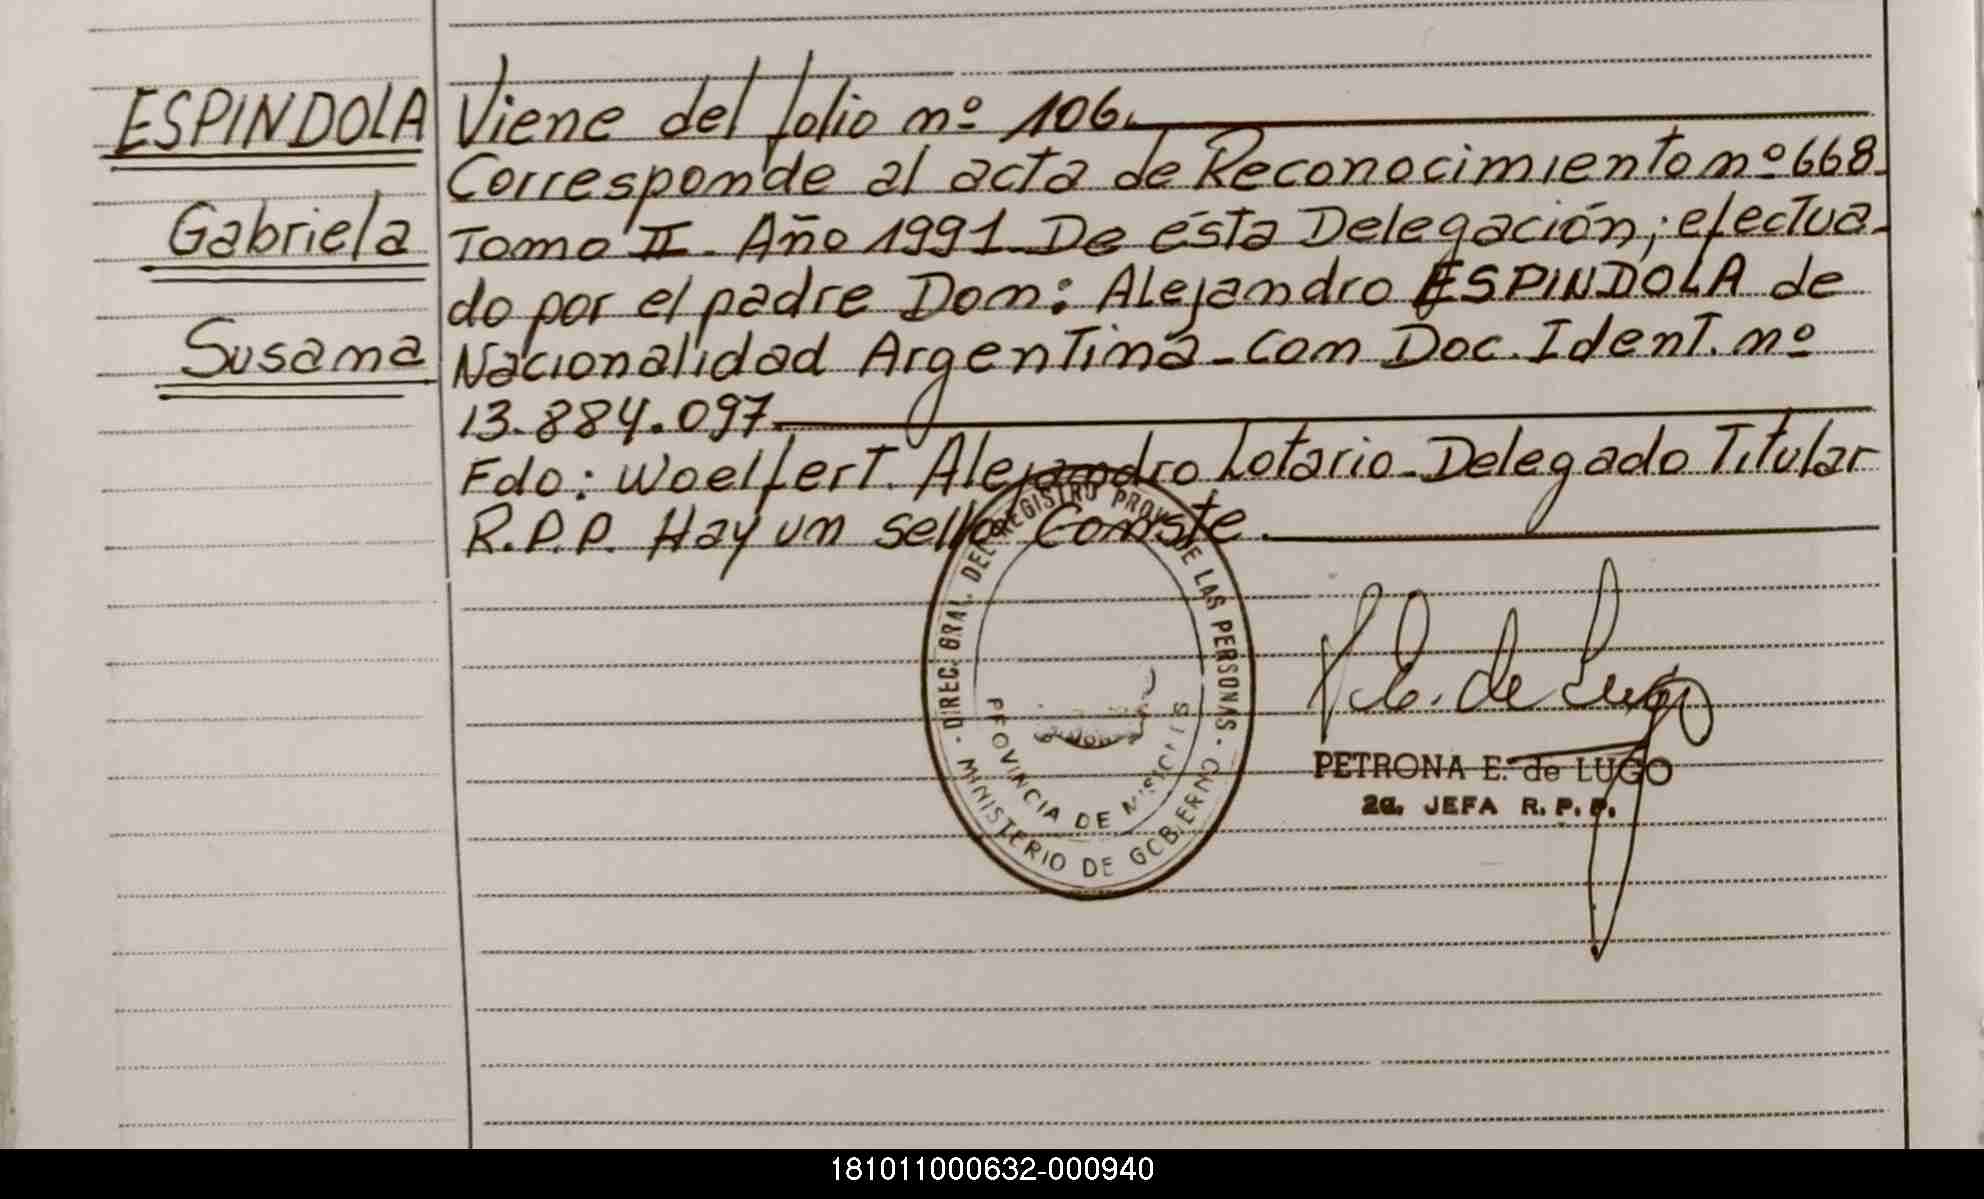 ESPINDOLA
Gabriela
Susana
Viene del folio nº 106.
Corresponde al acta de Reconocimiento nº 668.
Tomo II. Año 1991. De ésta Delegación; efectua-
do por el padre Don: Alejandro ESPINDOLA de
Nacionalidad Argentina - con Doc. Ident. nº
13.884.097
Fdo: Woelfert. Alejandro Lotario - Delegado Titular
R.P.P. Hay un sello Conste.
- DIREC. GRAL. DEL REGISTRO PROV. DE LAS PERSONAS -
PROVINCIA DE MISIONES
MINISTERIO DE GOBIERNO
de Lugo
PETRONA E. de LUGO
2a. JEFA R. P. P.
181011000632-000940